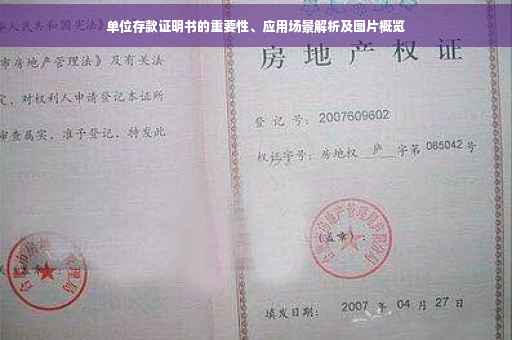 单位存款证明书的重要性、应用场景解析及图片概览
人民共和国宪法》
市房地产管理法》及有关法
定，对权利人申请登记本证所
审查属实，准予登记，特发此
房地产权证
登 记 号： 2007609602
权证字号：房地权 庐 字第 065042 号
（盖章）：
填发日期： 2007 年 04 月 27 日